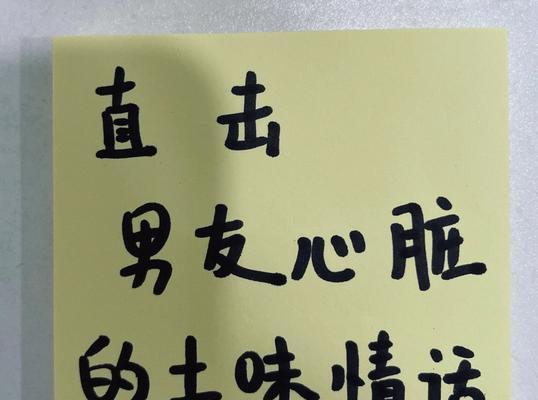 直击
男友心脏
的土味情话